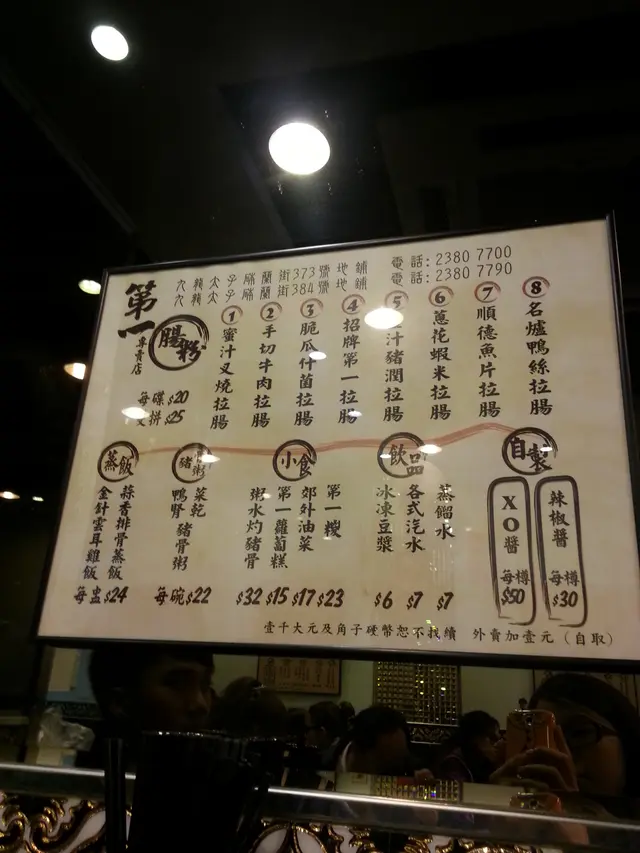 九龍太子砵蘭街373號地舖 電話: 2380 7700
九龍太子砵蘭街384號地舖 電話: 2380 7790
第一
腸粉
專賣店
每碟$20
拼$25
1 蜜汁叉燒拉腸
2 手切牛肉拉腸
3 脆瓜什菌拉腸
4 招牌第一拉腸
5 汁豬潤拉腸
6 蔥花蝦米拉腸
7 順德魚片拉腸
8 名爐鴨絲拉腸
蒸飯
蒜香排骨蒸飯
金針雲耳雞飯
每盅$24
豬骨粥
菜乾
鴨腎豬骨粥
每碗$22
小食
粥水灼豬骨
$32
第一蘿蔔糕
$15
郊外油菜
$17
第一糉
$23
飲品
冰凍豆漿
$6
各式汽水
$7
蒸餾水
$7
自製
XO醬
每樽
$50
辣椒醬
每樽
$30
壹千大元及角子硬幣恕不找續 外賣加壹元(自取)